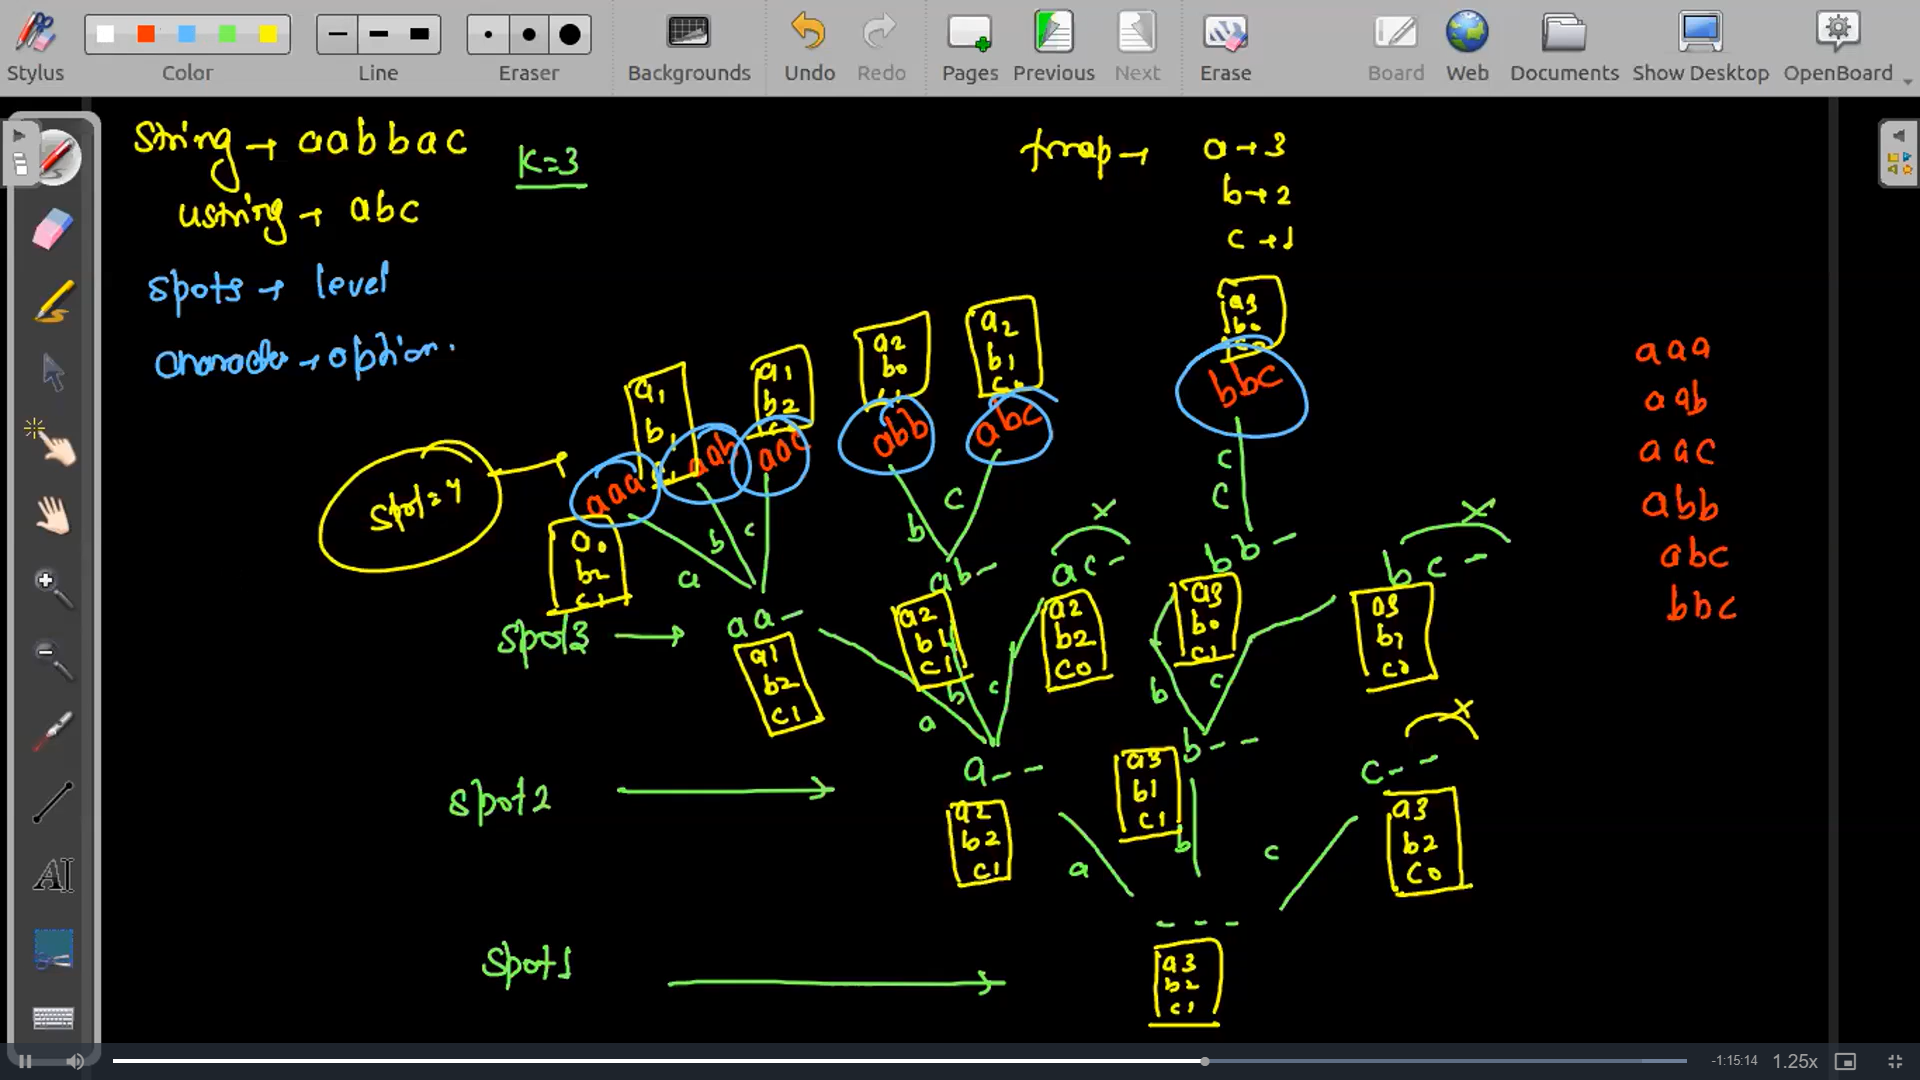 Stylus
Color
Line
Eraser
Backgrounds
Undo
Redo
Pages
Previous
Next
Erase
Board
Web
Documents
Show Desktop
OpenBoard
String → aabbac
K=3
ustring → abc
spots → level
character → option.
fmap →
a → 3
b → 2
c → 1
a3
b0
c0
bbc
a1
b1
c1
a1
b2
c
a2
b0
c1
a2
b1
c0
aaa
aab
aac
abb
abc
spot=4
a0
b2
c1
a
b
c
b
c
c
c
x
x
aa-
ab-
ac-
bb-
bc-
spot3
a1
b2
c1
a2
b1
c1
a2
b2
c0
a3
b0
c1
a3
b1
c0
a
b
c
b
c
x
spot2
a--
b--
c--
a2
b2
c1
a3
b1
c1
a3
b2
c0
a
b
c
---
spot1
a3
b2
c1
aaa
aab
aac
abb
abc
bbc
-1:15:14
1.25x